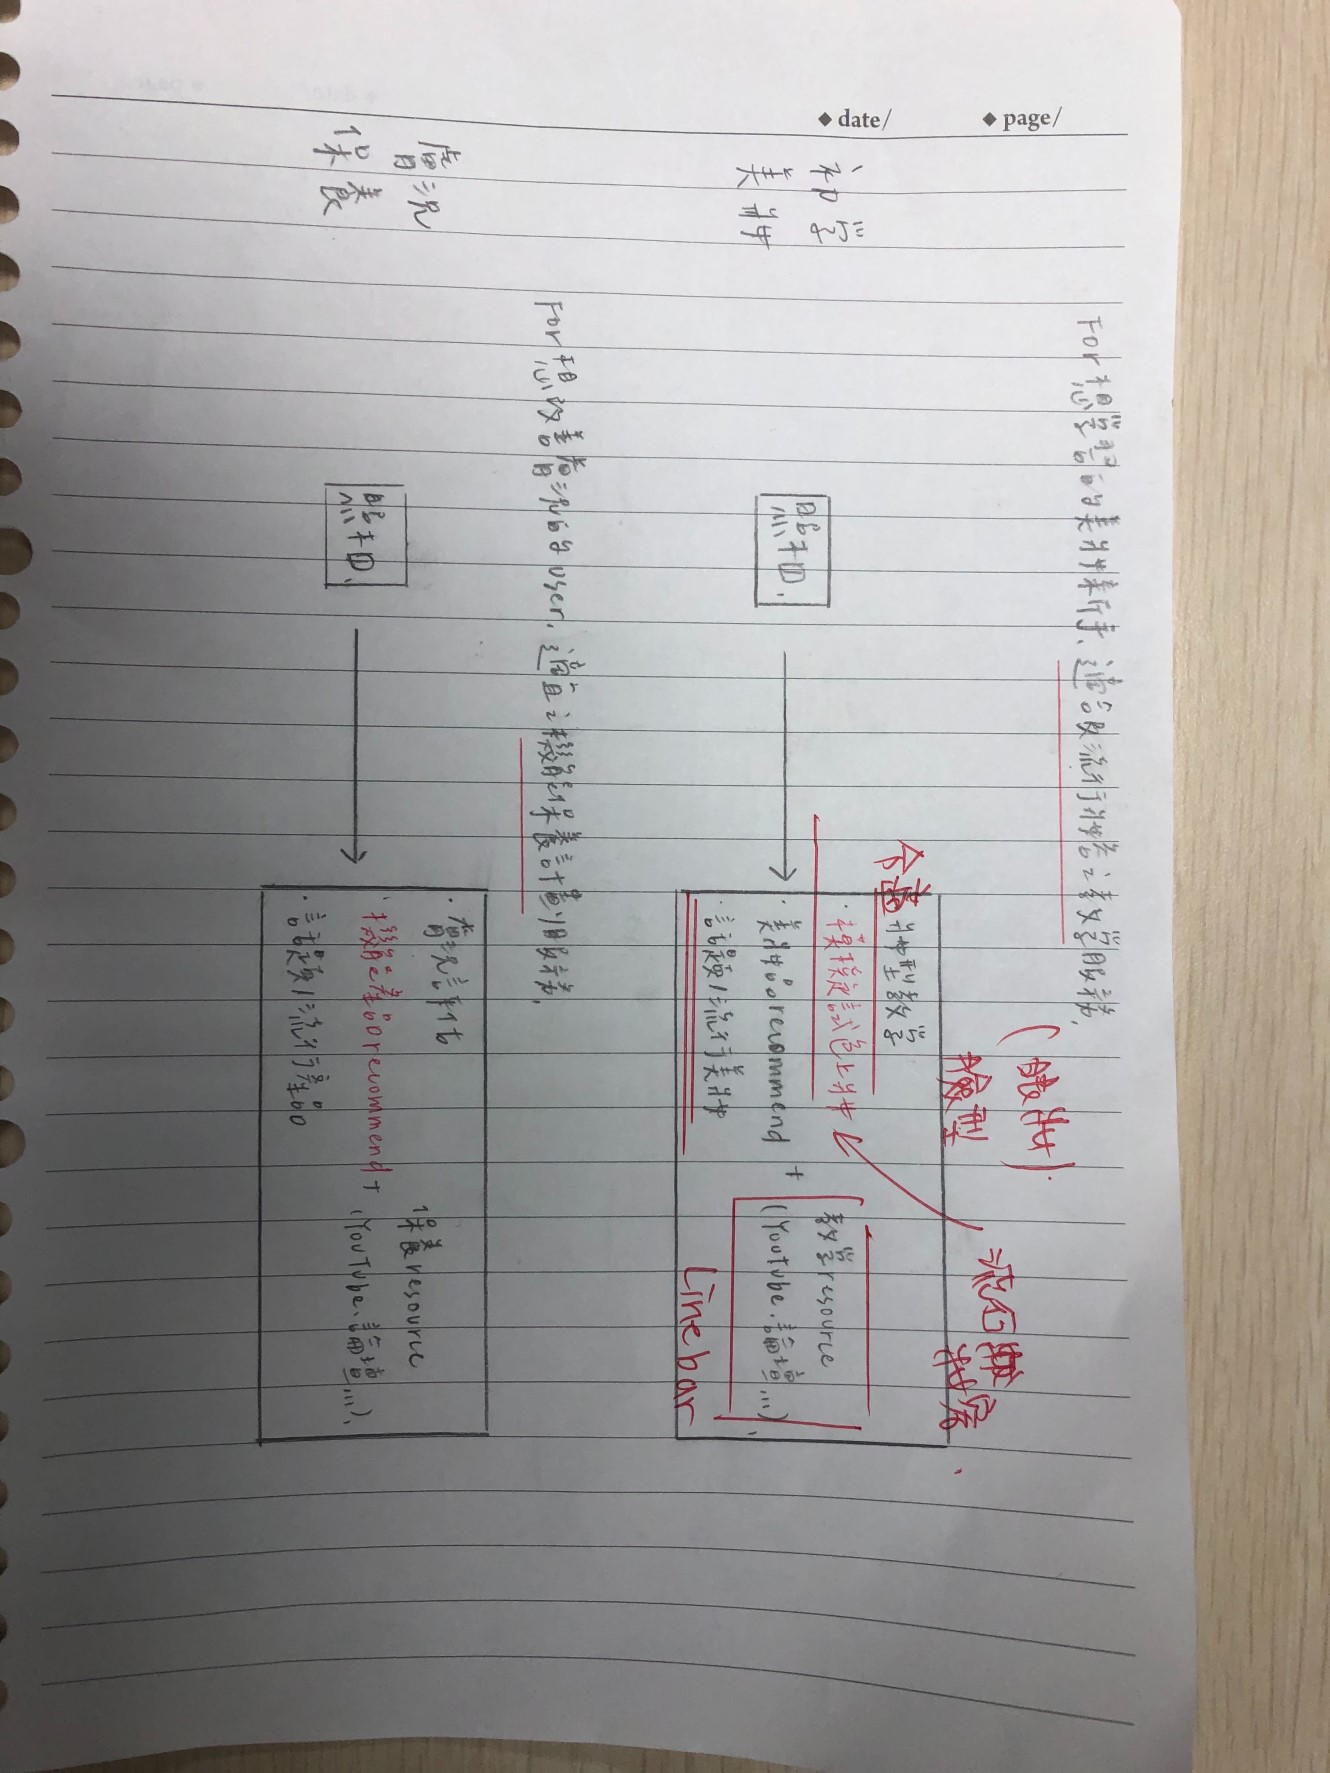 page/
date/
For 想學習的美妝新手、適合以流行妝容之教學服務.
(眼妝)
臉型
流行
妝容
初学
美妝
照相.
合適妝型教学
·模擬試色上妝
·美妝品 recommend
·話題/流行美妝
+
教学 resource
(Youtube.論壇...).
Linebar
For 想改善膚況的 user. 適宜之機能保養計畫服務.
膚況
保養
照相.
·膚況評估
·機能產品 recommend
·話題/流行產品
+
保養 resource
(YouTube.論壇...).